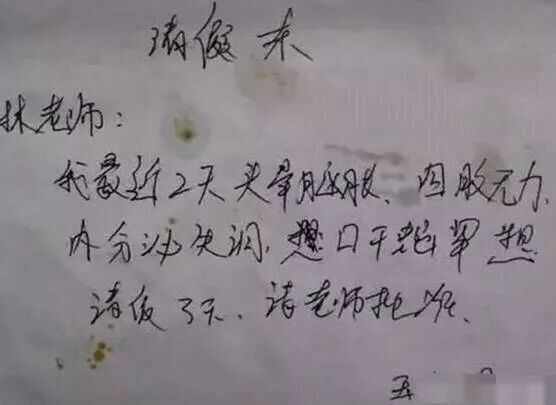 请假条
林老师:
我最近2天头晕脑胀、四肢无力、
内分泌失调,想口干 想
请假3天、请老师批准、
五